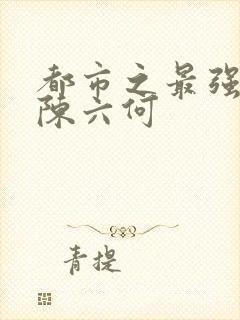 都市之最强
陈六何
青提